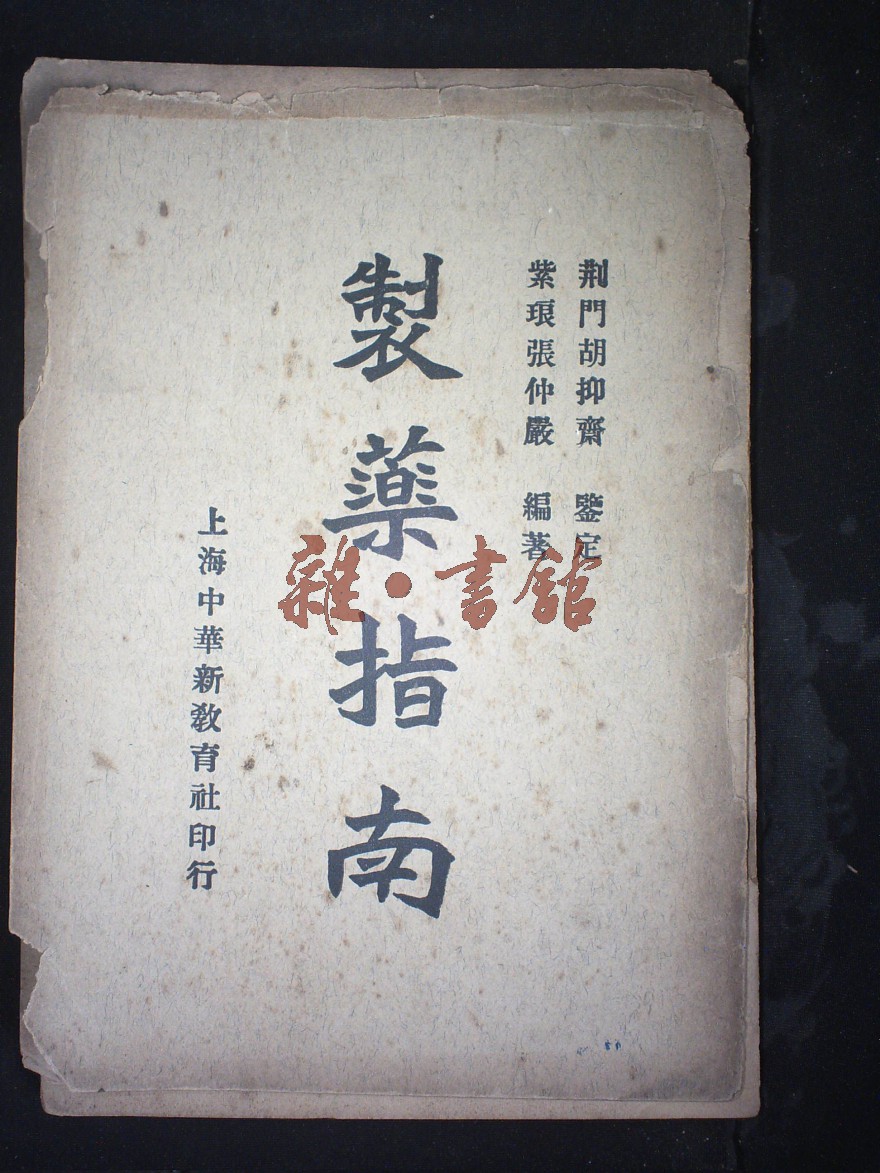 荆門胡抑齋 鑒定
紫琅張仲嚴 編著
製藥指南
上海中華新敎育社印行
雜·書館